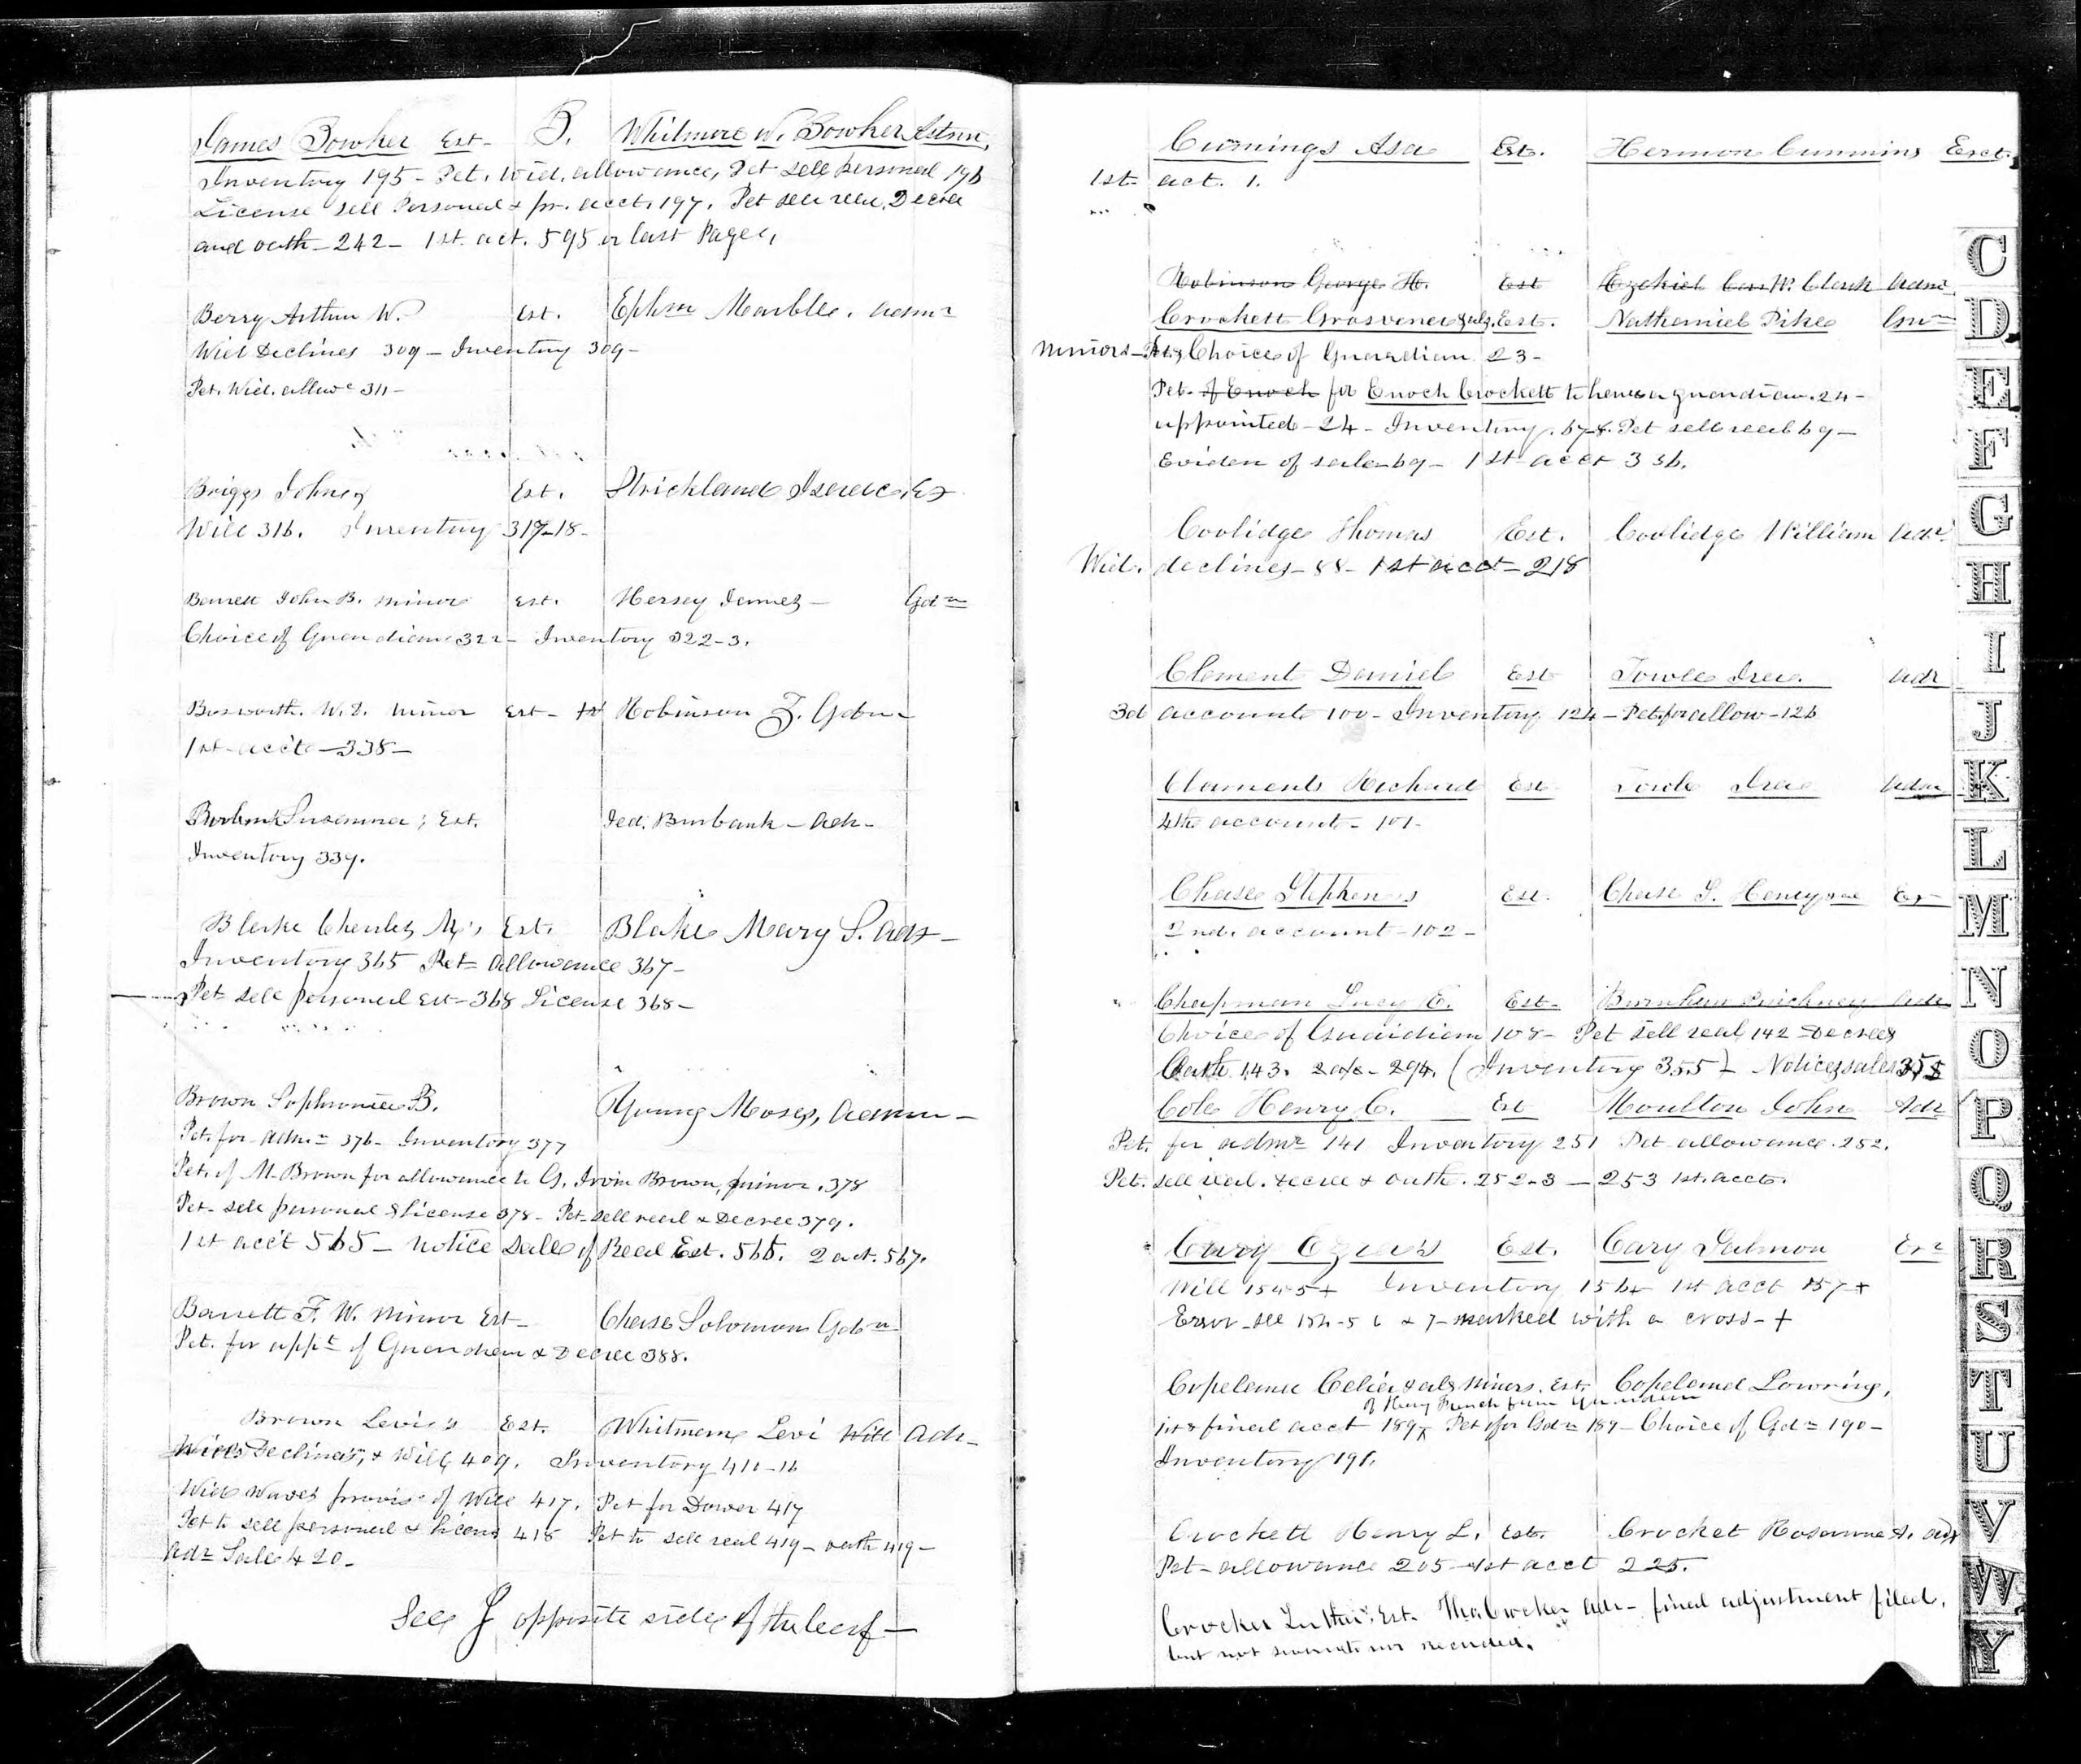 James Bowker Est- B. Whitmore W. Bowker
Inventory 195 - Pet. Wid. allowance, Pet sell personal 196
License sell Personal & pr. acct. 197. Pet sell real, Decree
and oath - 242 - 1st. act. 595 or last Page,
Berry Arthur W. Est. Ephm Marble. Admr
Wid Declines 309 - Inventory 309 -
Pet. Wid. allowc 311 -
Briggs Johns Est. Strickland Isaac, Ex
Will 316. Inventory 317-18-
Bennett John B. minor Est. Hersey James - Gdn
Choice of Guardian 322 - Inventory 322-3.
Bosworth. W. I. minor Est - Robinson F. Gdn -
1st - acct - 338 -
Susanna; Est. Jed. Burbank - adr -
Inventory 339.
Blake Charles M's Est. Blake Mary S. Adx -
Inventory 365 Pet - allowance 367 -
Pet sell personal Est - 368 License 368 -
Brown Sophronia B. Young Moses, Admr -
Pet. for Admr 376 - Inventory 377
Pet. of M. Brown for allowance to G. Irvin Brown, minor. 378
Pet - sell personal & license 378 - Pet - sell real & Decree 379.
1st acc't 565 - notice Sale of Real Est. 566. 2 act. 567.
Barrett F. W. minor Est - Chase Solomon Gdn
Pet. for appt of Guardian & Decree 388.
Brown Levi's Est. Whitman Levi Will Adr -
Declines, & Will 409. Inventory 411-16
Wid Waves provis of Will 417. Pet for Dower 417
Pet to sell personal & license 418 Pet to sell real 419 - oath 419 -
Adr Sale 420 -
See J opposite side of the leaf -
Cumings Asa Est. Hermon Cummins Exct.
1st act. 1.
Robinson George H. Est Ezekiel W. Clark Adm
Crockett Grosvenor & als. Est. Nathaniel Pike Gun
minors - Choice of Guardian 23 -
Pet. of Enoch for Enoch Crockett to have a guardian. 24 -
appointed - 24 - Inventory. 67-8. Pet sell real 69 -
Eviden of sale 69 - 1st acct 336.
Coolidge Thomas Est. Coolidge William Adr
Wid. declines - 88 - 1st acct - 218
Clement Daniel Est Towle Ira. Adr
3d account 100 - Inventory 124 - Pet. for allow - 126
Claments Richard Est Towle Ira Adm
4th account - 101 -
Chase Stephen's Est. Chase S. Ex
2nd. account - 102 -
Chapman Lucy E. Est - Burnham Pinckney Adr
Choice of Guardian 108 - Pet sell real 142 - Decrees
Oath 143. 294. (Inventory 355) - Notice, sales 355
Cole Henry C. Est Moulton John Adr
Pet. for admr 141 Inventory 251 Pet allowance. 252.
Pet. sell real. decree & oath. 252-3 - 253 1st. acct.
Cary Ozias Est. Cary Salmon Exr
Will 154-5+ Inventory 156+ 1st acct 157+
Error - see 154-5 6 & 7 - marked with a cross - +
Copeland Celia & als minors. Est. Copeland Lowring,
of Mary French from Guardian
1st & final acct 189 Pet for Gdn 189 - Choice of Gdn 190 -
Inventory 191.
Crockett Henry L. Est. Crocket Rosanna A. Adx
Pet - allowance 205 - 1st acct 225.
Crocker Luther, Est. Thos. Crocker Adr - final adjustment filed,
but not recorded.
C
D
E
F
G
H
I
J
K
L
M
N
O
P
Q
R
S
T
U
V
W
Y